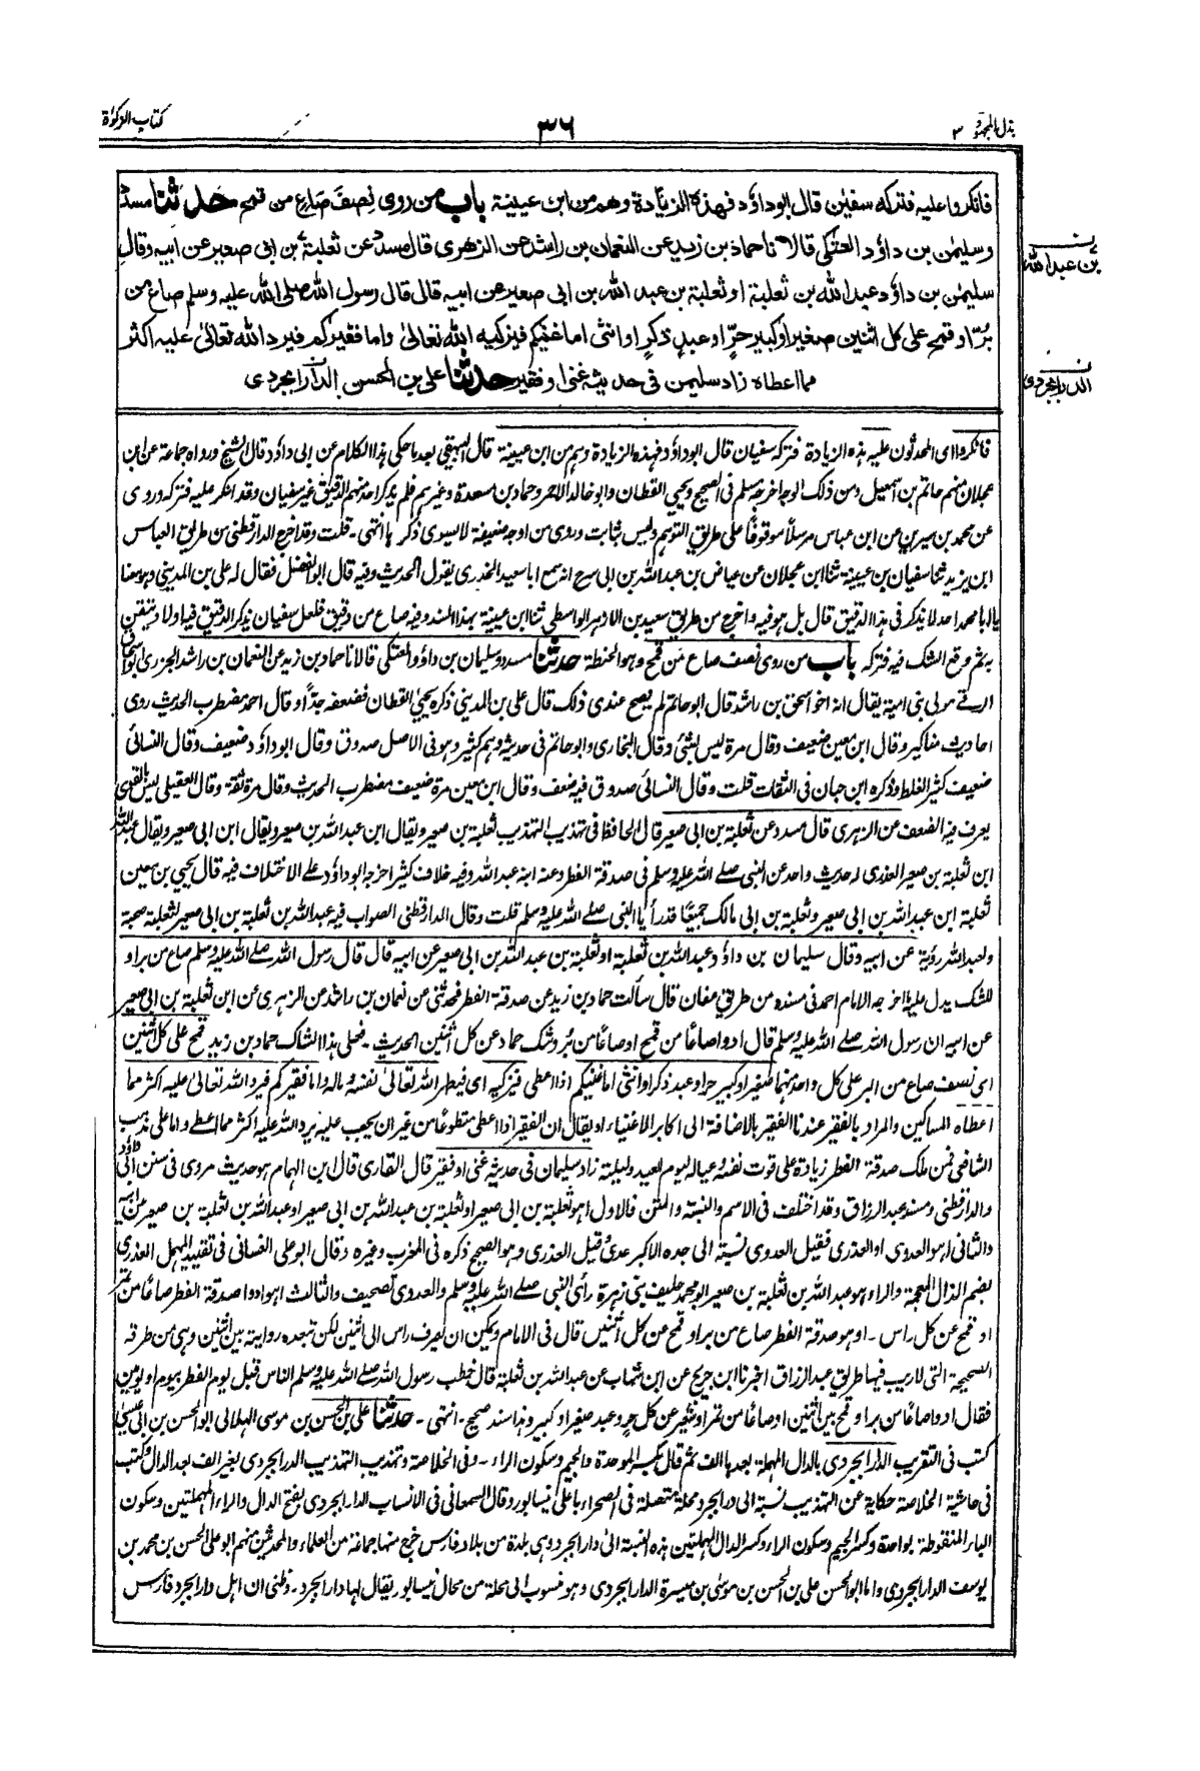 بذل المجهود ٣
٣٦
كتاب الزكوٰة
فانكروا عليه فتركه سفيٰن قال ابوداؤد فهذه الزيادة وهم من ابن عيينة باب من روى نصف صاع من قمح حدثنا مسدد
وسليمٰن بن داؤد العتكى قالا نا حماد بن زيد عن النعمان بن راشد عن الزهرى قال مسدد عن ثعلبة بن ابى صعير عن ابيه وقال
سليمٰن بن داؤد عبد الله بن ثعلبة او ثعلبة بن عبد الله بن ابى صعير عن ابيه قال قال رسول الله صلى الله عليه وسلم صاع من
برّ او قمح على كل اثنين صغير او كبير حرّ او عبد ذكرٍ او انثى اما غنيكم فيزكيه الله تعالىٰ واما فقيركم فيرد الله تعالىٰ عليه اكثر
مما اعطاه زاد سليمن فى حديثه غنى او فقير حدثنا على بن الحسن الدارابجردى
بن عبد الله
الدرابجردى
فانكروا اى المحدثون عليه هذه الزيادة فتركه سفيان قال ابوداؤد فهذه الزيادة وهم من ابن عيينة قال البيهقى بعد ما حكى هذا الكلام عن ابى داؤد قال الشيخ ورواه جماعة عن ابن
عجلان منهم حاتم بن اسمعيل ومن ذلك الوجه اخرجه مسلم فى الصحيح ويحيى القطان وابو خالد الاحمر وحماد بن مسعدة وغيرهم فلم يذكر احد منهم الدقيق غير سفيان وقد انكر عليه فتركه وروى
عن محمد بن سيرين عن ابن عباس مرسلاً موقوفاً على طريق التوهم وليس بثابت وروى من اوجه ضعيفة لا يسوى ذكرها انتهى - قلت وقد اخرج الدارقطنى من طريق العباس
ابن يزيد ثنا سفيان بن عيينة ثنا ابن عجلان عن عياض بن عبد الله بن ابى سرح انه سمع ابا سعيد الخدرى يقول الحديث وفيه قال ابو الفضل فقال له على بن المدينى وهو معنا
يا ابا محمد احد لا يذكر فى هذا الدقيق قال بل هو فيه واخرج من طريق سعيد بن الازهر الواسطى ثنا ابن عيينة بهذا السند وفيه صاع من دقيق فلعل سفيان يذكر الدقيق فيه اولا ويتيقن
به ثم وقع الشك فيه فتركه باب من روى نصف صاع من قمح وهو الحنطة حدثنا مسدد وسليمان بن داؤد العتكى قالا نا حماد بن زيد عن النعمان بن راشد الجزرى ابو اسحاق
الرقى مولى بنى امية يقال انه اخو اسحق بن راشد قال ابو حاتم لم يصح عندى ذلك قال على بن المدينى ذكره يحيى القطان فضعفه جداً وقال احمد مضطرب الحديث روى
احاديث مناكير وقال ابن معين ضعيف وقال مرة ليس بشئ وقال البخارى وابو حاتم فى حديثه وهم كثير وهو فى الاصل صدوق وقال ابوداؤد ضعيف وقال النسائى
ضعيف كثير الغلط وذكره ابن حبان فى الثقات قلت وقال النسائى صدوق فيه ضعف وقال ابن معين مرة ضعيف مضطرب الحديث وقال مرة ثقة وقال العقيلى ليس بالقوى
يعرف فيه الضعف عن الزهرى قال مسدد عن ثعلبة بن ابى صعير قال الحافظ فى تهذيب التهذيب ثعلبة بن صعير ويقال ابن عبد الله بن صعير ويقال ابن ابى صعير ويقال عبد الله
ابن ثعلبة بن صعير العذرى له حديث واحد عن النبى صلى الله عليه وسلم فى صدقة الفطر وعنه ابنه عبد الله وفيه خلاف كثير اخرجه ابوداؤد على الاختلاف فيه قال يحيى بن معين
ثعلبة ابن عبد الله بن ابى صعير وثعلبة بن ابى مالك جميعاً قد رأيا النبى صلى الله عليه وسلم قلت وقال الدارقطنى الصواب فيه عبد الله بن ثعلبة بن ابى صعير لثعلبة صحبة
ولعبد الله رؤية عن ابيه وقال سليمان بن داؤد عبد الله بن ثعلبة او ثعلبة بن عبد الله بن ابى صعير عن ابيه قال قال رسول الله صلى الله عليه وسلم صاع من بر او
للشك يدل عليه ما اخرجه الامام احمد فى مسنده من طريق عفان قال سألت حماد بن زيد عن صدقة الفطر فحدثنى عن نعمان بن راشد عن الزهرى عن ابن ثعلبة بن ابى صعير
عن ابيه ان رسول الله صلى الله عليه وسلم قال ادوا صاعاً من قمح او صاعاً من بُر وشك حماد عن كل اثنين الحديث - فعلى هذا الشاك حماد بن زيد قمح على كل اثنين
اى نصف صاع من البر على كل واحد منهما صغير او كبير حر او عبد ذكر او انثى اما غنيكم اذا اعطى فيزكيه اى فيطهر الله تعالىٰ نفسه وماله واما فقيركم فيرد الله تعالىٰ عليه اكثر مما
اعطاه المساكين والمراد بالفقير عندنا الفقير بالاضافة الى اكابر الاغنياء او يقال ان الفقير اذا اعطى متطوعاً من غير ان يجب عليه يرد الله عليه اكثر مما اعطى واما على مذهب
الشافعى فمن ملك صدقة الفطر زيادة على قوت نفسه وعياله ليوم العيد وليلته زاد سليمان فى حديثه غنى او فقير قال القارى قال ابن الهمام هو حديث مروى فى سنن ابى داؤد
والدارقطنى ومسند عبد الرزاق وقد اختلف فى الاسم والنسبة والمتن فالاول اهو ثعلبة بن ابى صعير او ثعلبة بن عبد الله بن ابى صعير او عبد الله بن ثعلبة بن صعير عن ابيه
والثانى اهو العدوى او العذرى فقيل العدوى نسبة الى جده الاكبر عدى وقيل العذرى وهو الصحيح ذكره فى المغرب وغيره وقال ابو على الغسانى فى تقييد المهمل العذرى
بضم الذال المعجمة والراء هو عبد الله بن ثعلبة بن صعير ابو محمد حليف بنى زهرة رأى النبى صلى الله عليه وسلم والعدوى تصحيف والثالث اهو ادوا صدقة الفطر صاعاً من تمر
او قمح عن كل راس - او هو صدقة الفطر صاع من بر او قمح عن كل اثنين قال فى الامام ويمكن ان يحرف راس الى اثنين لكن تبعده رواية بين اثنين وهى من طرقه
الصحيحة التى لا ريب فيها طريق عبد الرزاق اخبرنا ابن جريج عن ابن شهاب عن عبد الله بن ثعلبة قال خطب رسول الله صلى الله عليه وسلم الناس قبل يوم الفطر بيوم او يومين
فقال ادوا صاعاً من بر او قمح بين اثنين او صاعاً من تمر او شعير عن كل حر وعبد صغير او كبير وهذا سند صحيح - انتهى - حدثنا على بن الحسن بن موسى الهلالى ابو الحسن بن ابى عيسى
كتب فى التقريب الدارابجردى بالدال المهملة بعدها الف ثم قال بكسر الموحدة والجيم وسكون الراء - وفى الخلاصة وتهذيب التهذيب الدرابجردى بغير الف بعد الدال وكتب
فى حاشية الخلاصة حكاية عن التهذيب نسبة الى درابجرد محلة متصلة فى الصحراء باعلى نيسابور وقال السمعانى فى الانساب الدارابجردى بفتح الدال والراء المهملتين وسكون
الباء المنقوطة بواحدة وكسر الجيم وسكون الراء وكسر الدال المهلتين هذه النسبة الى دارابجرد وهى بلدة من بلاد فارس خرج منها جماعة من العلماء والمحدثين منهم ابو على الحسن بن محمد بن
يوسف الدارابجردى واما ابو الحسن على بن الحسن بن موسى بن ميسرة الدارابجردى وهو منسوب الى محلة من محال نيسابور يقال لها دارابجرد - وظنى ان اهل دارابجرد فارس